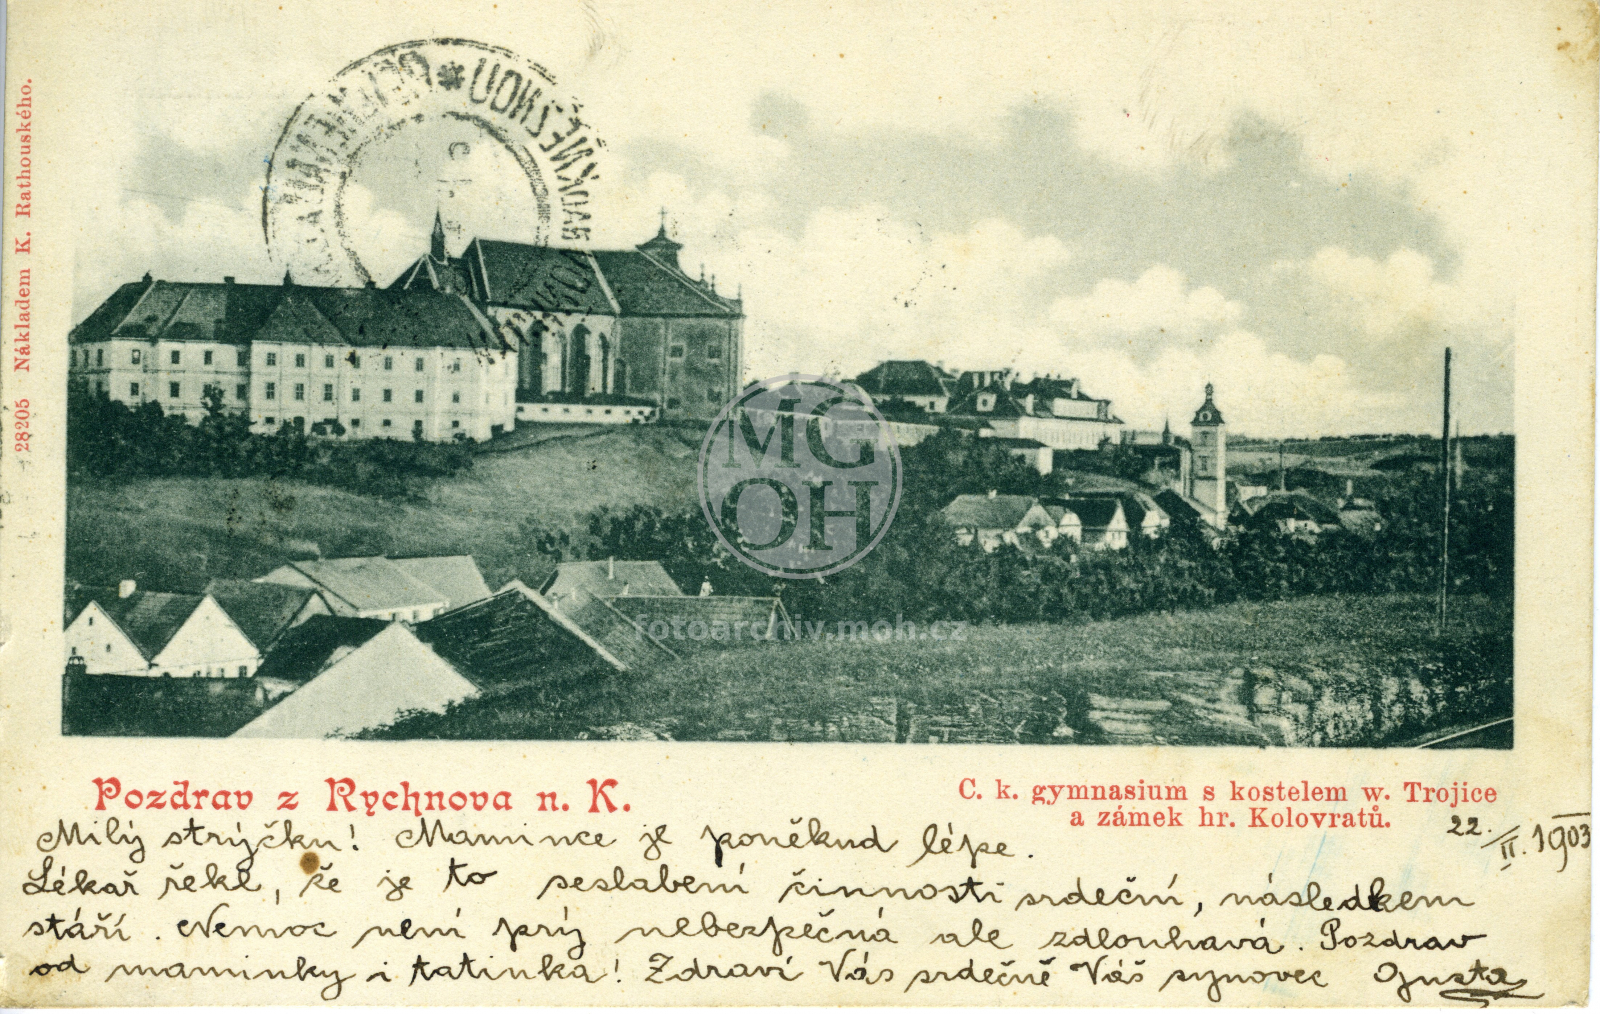 28205 Nákladem K. Rathouského.
MG
OH
fotoarchiv.moh.cz
Pozdrav z Rychnova n. K.
C. k. gymnasium s kostelem w. Trojice
a zámek hr. Kolovratů.
22. II. 1903
Milý strýčku! Mamince je poněkud lépe.
Lékař řekl, že je to seslabení činnosti srdeční, následkem
stáří. Nemoc není prý nebezpečná ale zdlouhavá. Pozdrav
od maminky i tatínka! Zdraví Vás srdečně Váš synovec Gusta